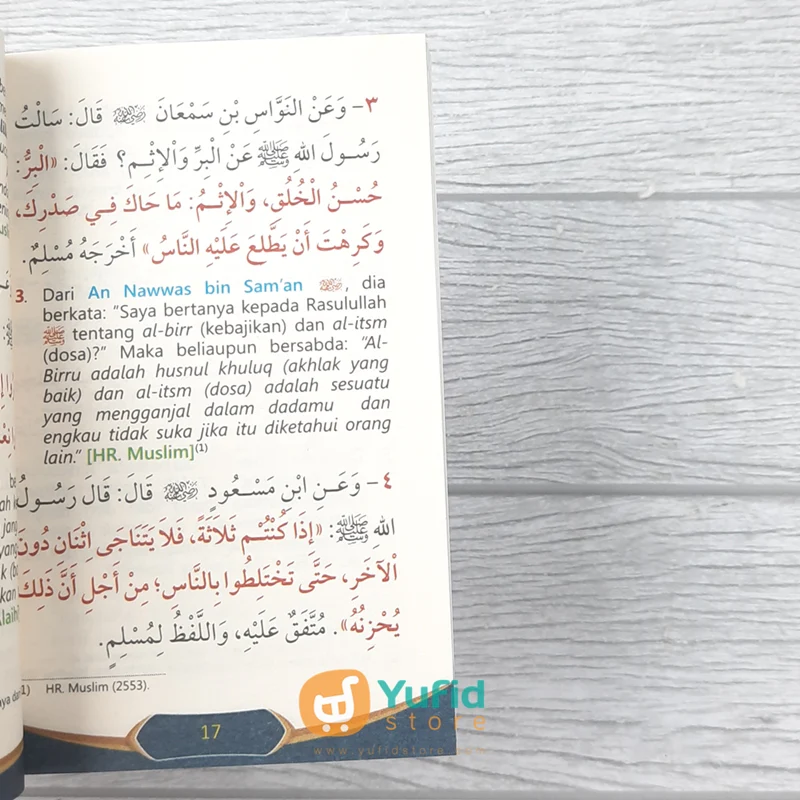 ٣- وَعَنْ النَوَّاسِ بْنِ سَمْعَانَ ﵁ قَالَ: سَالْتُ
رَسُولَ اللهِ ﷺ عَنْ الْبِرِّ وَالْإِثْمِ؟ فَقَالَ: «الْبِرُّ:
حُسْنُ الْخُلُقِ، وَالْإِثْمُ: مَا حَاكَ فِي صَدْرِكَ،
وَكَرِهْتَ أَنْ يَطَّلِعَ عَلَيْهِ النَّاسُ» أَخْرَجَهُ مُسْلِمٌ.
3. Dari An Nawwas bin Sam'an ﵁, dia
berkata: "Saya bertanya kepada Rasulullah
ﷺ tentang al-birr (kebajikan) dan al-itsm
(dosa)?" Maka beliaupun bersabda: "Al-
Birru adalah husnul khuluq (akhlak yang
baik) dan al-itsm (dosa) adalah sesuatu
yang mengganjal dalam dadamu dan
engkau tidak suka jika itu diketahui orang
lain." [HR. Muslim](1)
٤- وَعَنِ ابْنِ مَسْعُودٍ ﵁ قَالَ: قَالَ رَسُولُ
اللهِ ﷺ: «إِذَا كُنْتُمْ ثَلَاثَةً، فَلَا يَتَنَاجَى اثْنَانِ دُونَ
الْآخَرِ، حَتَّى تَخْتَلِطُوا بِالنَّاسِ؛ مِنْ أَجْلِ أَنَّ ذَلِكَ
يُحْزِنُهُ». مُتَّفَقٌ عَلَيْهِ، وَاللَّفْظُ لِمُسْلِمٍ.
1) HR. Muslim (2553).
17
Yufid
store
www.yufidstore.com